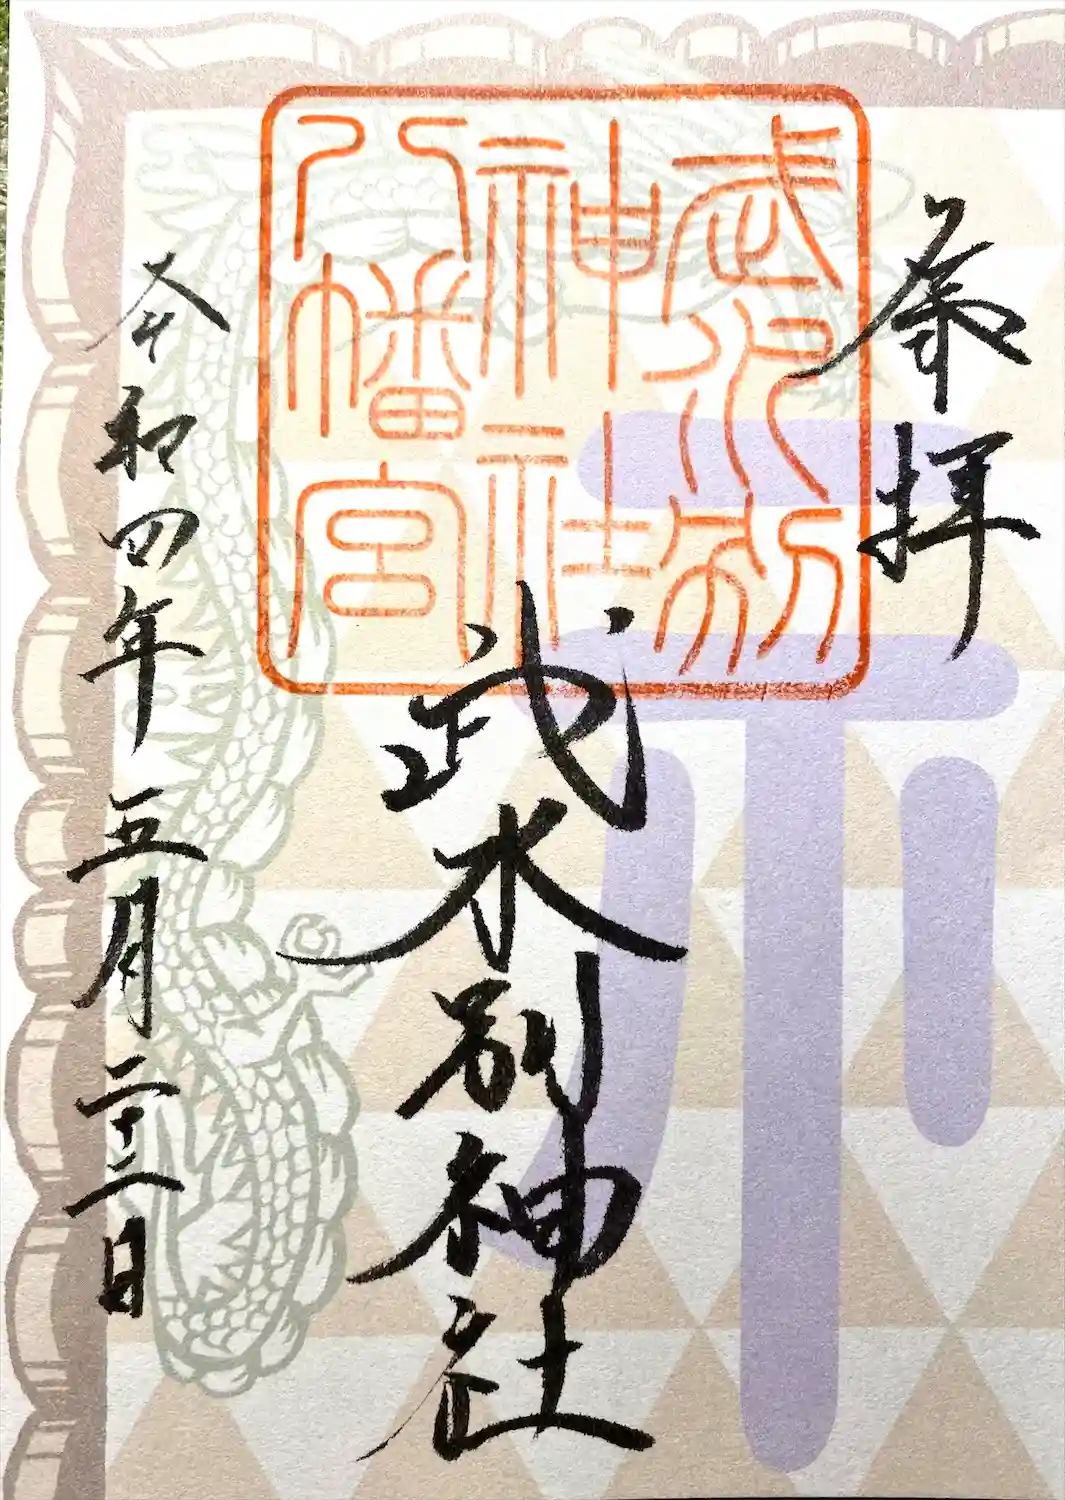 奉拝
武水別
神社
八幡宮
武水別神社
令和四年五月二十三日